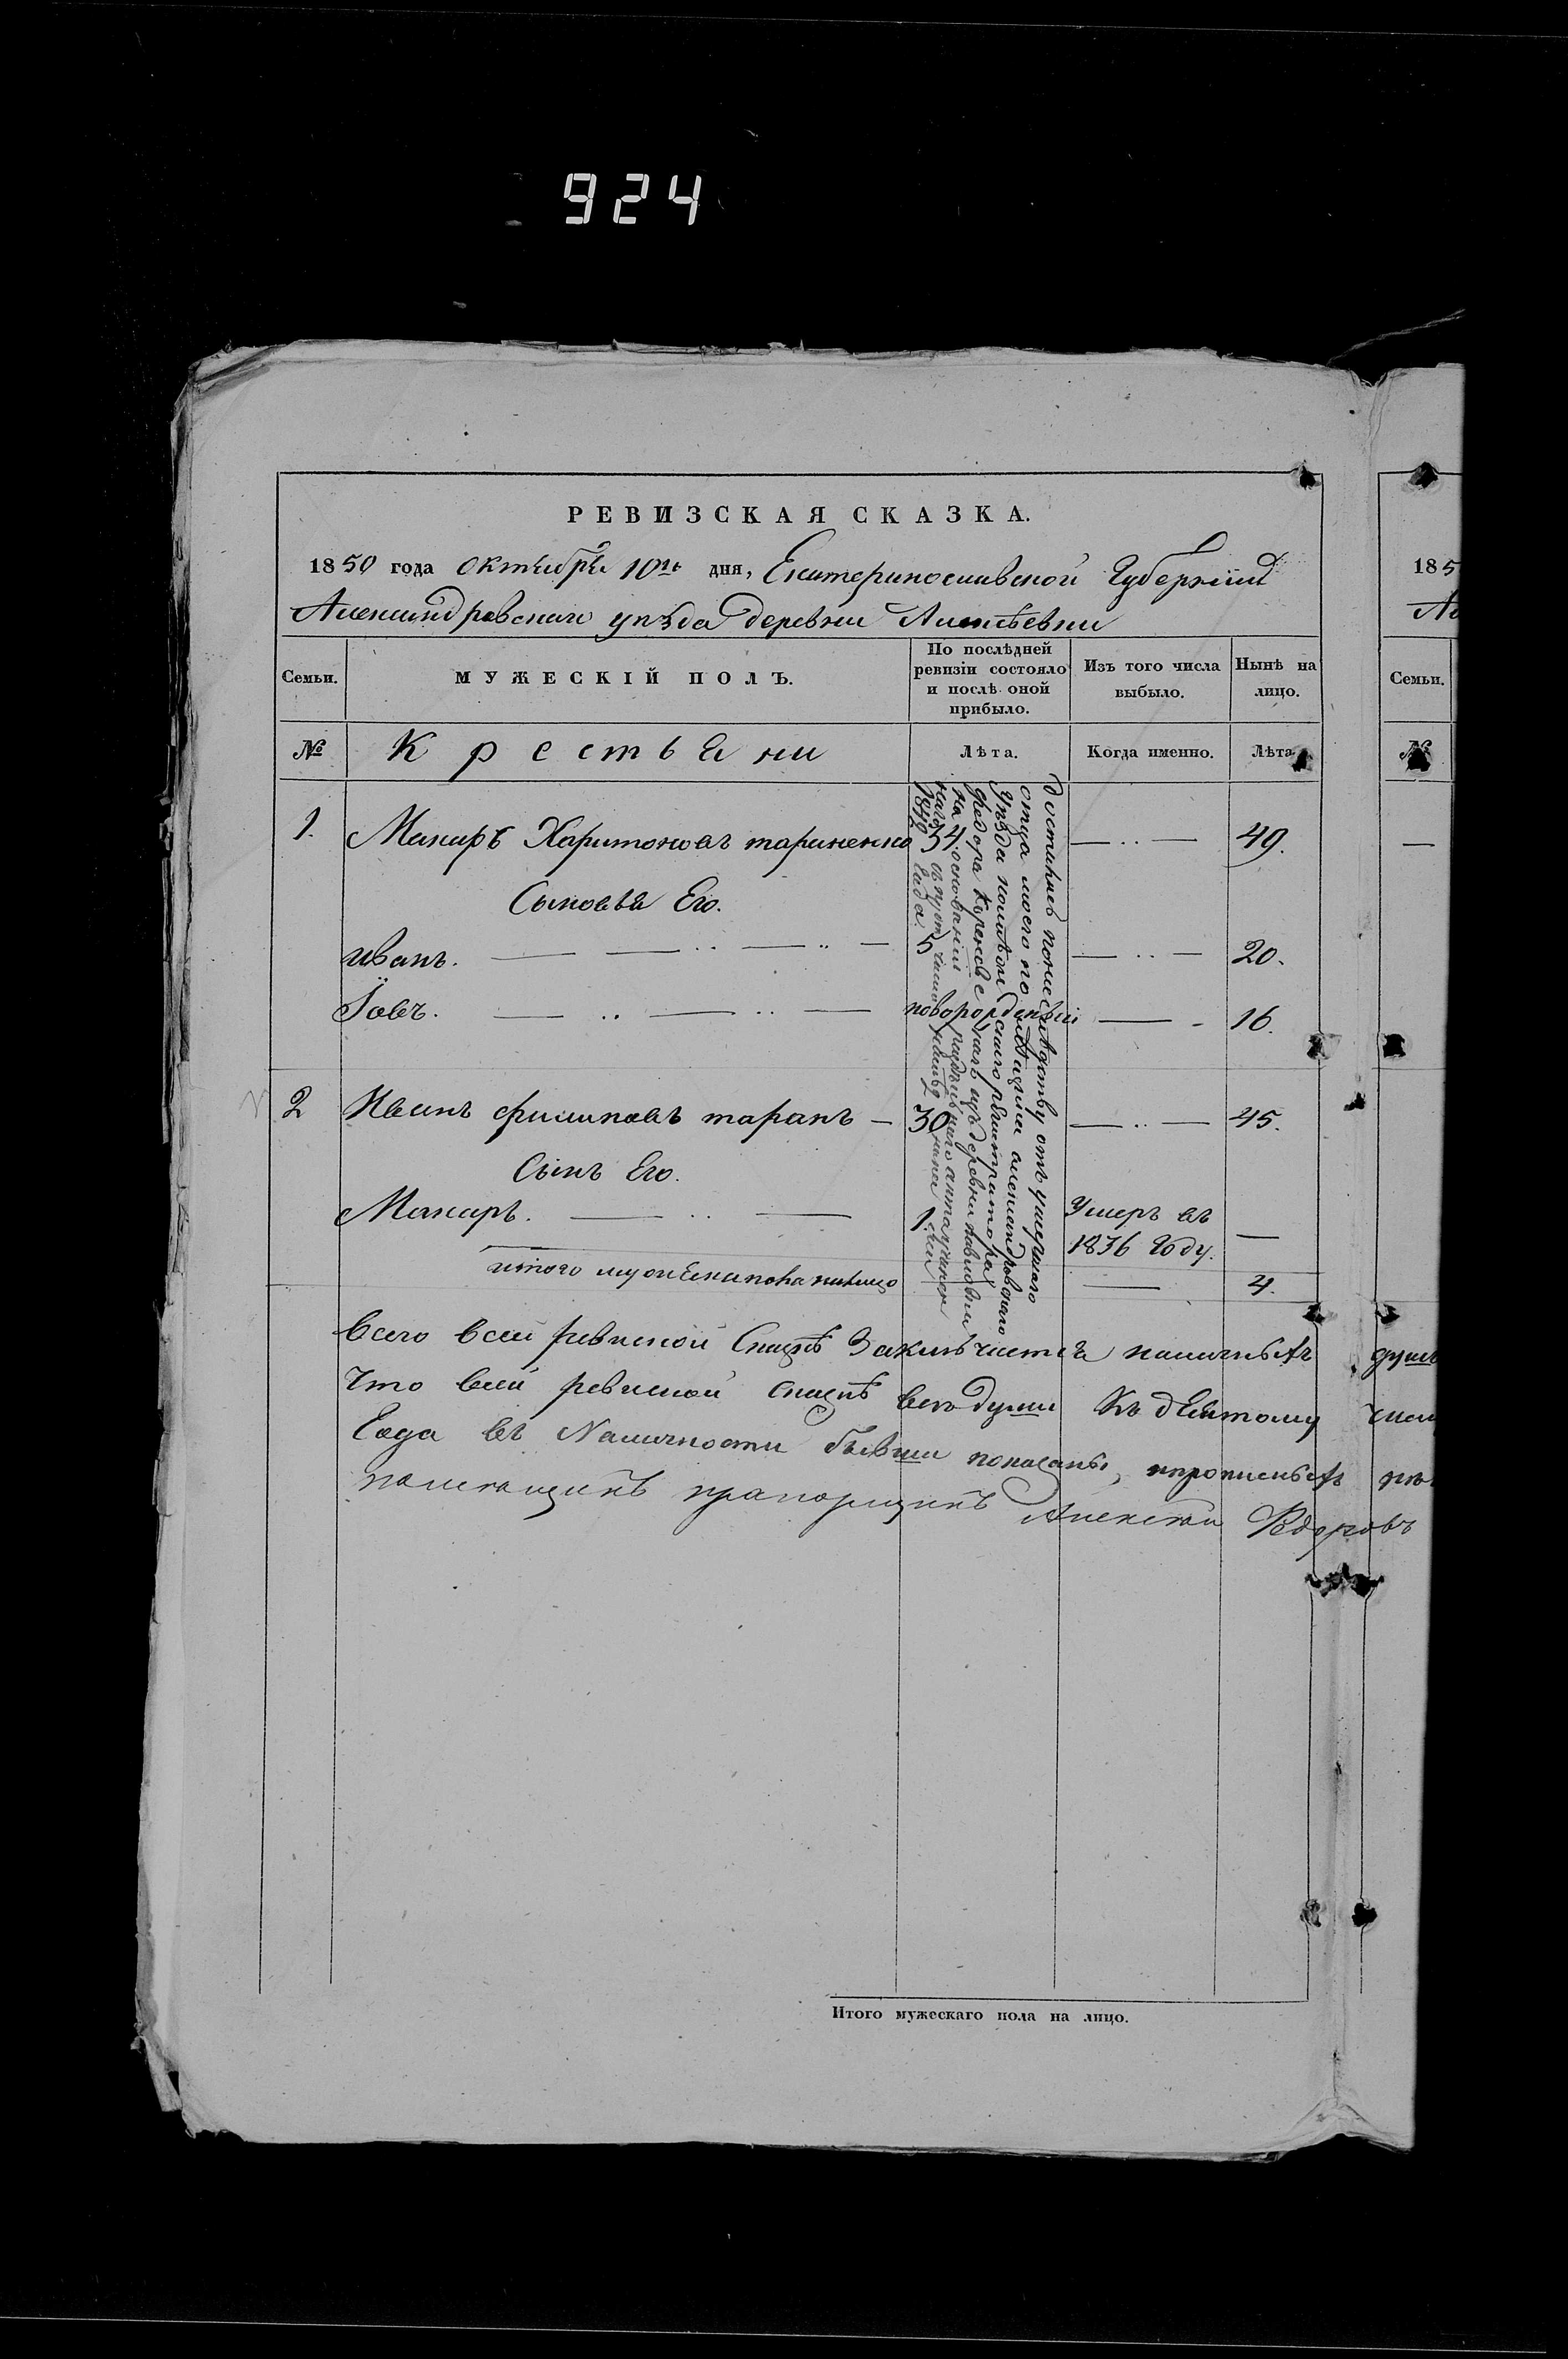 924
РЕВИЗСКАЯ СКАЗКА.
1850 года октября 10го дня, Екатеринославской Губерніи
Александровскаго уѣзда деревни Алексѣевки
Семьи.
МУЖЕСКІЙ ПОЛЪ.
По послѣдней ревизіи состояло и послѣ оной прибыло.
Изъ того числа выбыло.
Нынѣ на лицо.
№
Крестьяни
Лѣта.
Когда именно.
Лѣта.
1. Макаръ Харитоновъ тараненко 34 — .. — 49.
Сыновья Его.
иванъ. — .. — .. — 5 — .. — 20.
Іовъ. — .. — .. — новорожденый — - 16.
2 Иванъ филиповъ таранъ — 30 — .. — 45.
Сынъ Его.
Макаръ. — .. — 1. Умеръ въ 1836 Году. —
итого мужеска пола налицо — 4.
достались по наслѣдству отъ умершаго
отца моего александровскаго
Уѣзда
Федора изъ деревни
на основаніи
1840 года
Всего в сей ревиской Сказкѣ Заключается наличныхъ душъ
Что в сей ревиской сказкѣ все души Къ девятому
Года въ Наличности бывши показаны, и прописныхъ
помещикъ прапорщикъ Алексѣй
Итого мужескаго пола на лицо.
185
Семьи.
№